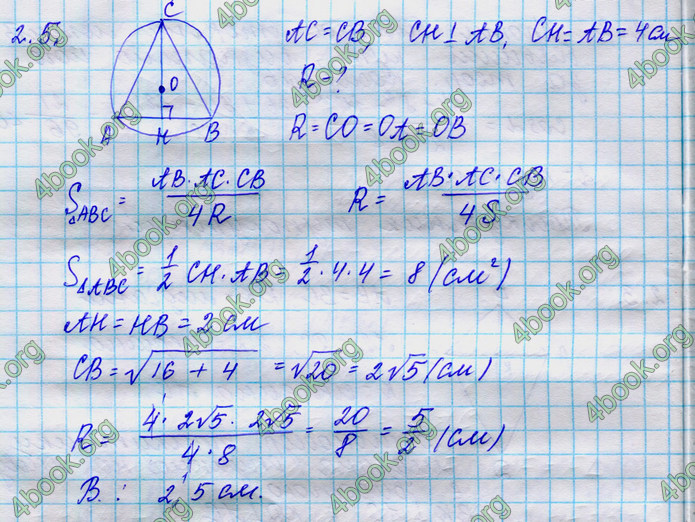 2.5.
C
O
A H B
AC = CB, CH ⊥ AB, CH = AB = 4 см
R - ?
R = CO = OA = OB
S△ABC = AB · AC · CB / 4R    R = AB · AC · CB / 4S
S△ABC = 1/2 CH · AB = 1/2 · 4 · 4 = 8 (см²)
AH = HB = 2 см
CB = √(16 + 4) = √20 = 2√5 (см)
R = 4 · 2√5 · 2√5 / 4 · 8 = 20/8 = 5/2 (см)
В : 2,5 см.
4book.org